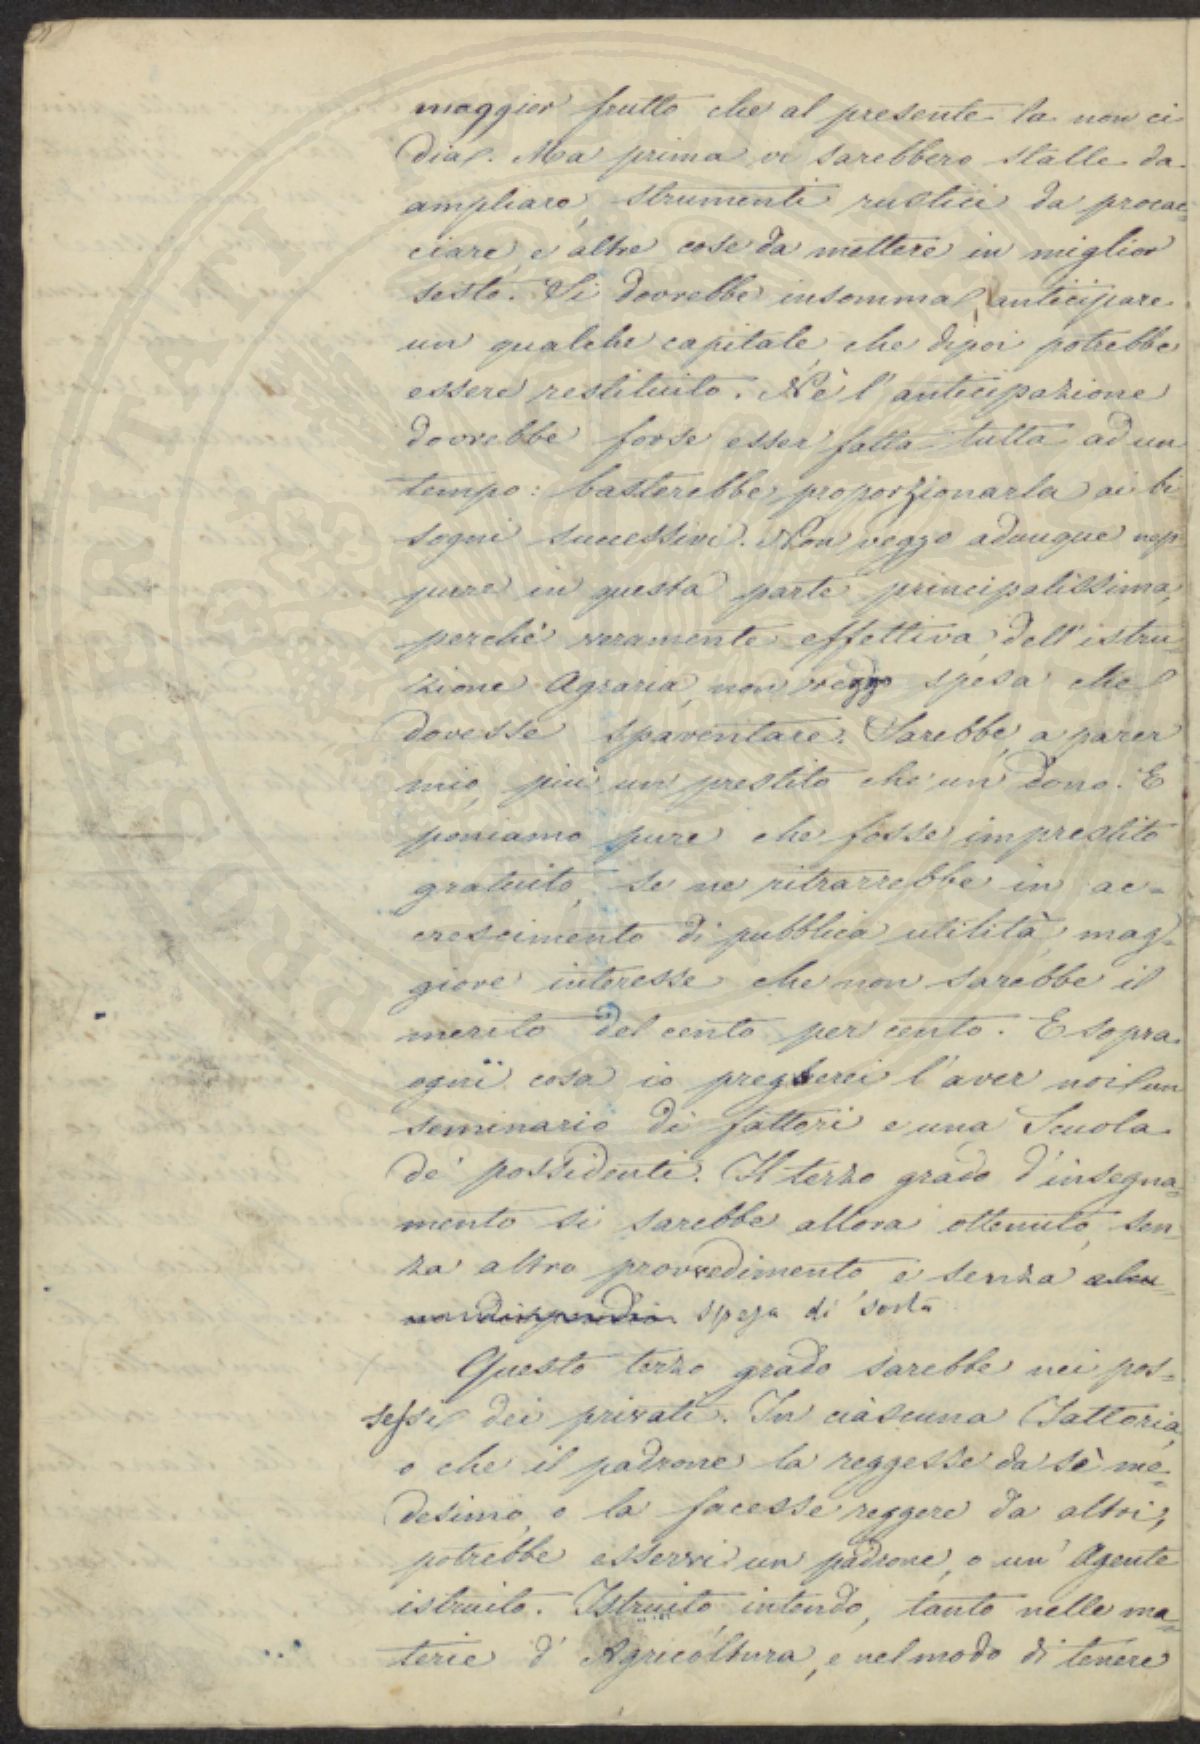 maggior frutto che al presente la non ci
dia. Ma prima vi sarebbero stalle da
ampliare, strumenti rustici da procac=
ciare, e altre cose da mettere in miglior
sesto. Si dovrebbe insomma, anticipare
un qualche capitale, che dipoi potrebbe
essere restituito. Nè l'anticipazione
dovrebbe forse esser fatta tutta ad un
tempo: basterebbe proporzionarla ai bi
sogni successivi. Non veggo adunque nep
pure in questa parte principalissima,
perchè veramente effettiva, dell'istru=
zione Agraria, non veggo spesa che
dovesse spaventare. Sarebbe, a parer
mio, più un prestito che un dono. E
poniamo pure che fosse imprestito
gratuito, se ne ritrarrebbe in ac=
crescimento di pubblica utilità, mag=
giore interesse che non sarebbe il
merito del cento per cento. E sopra
ogni cosa io pregherei l'aver noi un
seminario di fattori e una Scuola
de' possidenti. Il terzo grado d'insegna=
mento si sarebbe allora ottenuto, sen
za altro provvedimento e senza alcu=
no dispendio. spesa di sorta
Questo terzo grado sarebbe nei pos=
sessi dei privati. In ciascuna Fattoria,
o che il padrone la reggesse da sè me=
desimo, o la facesse reggere da altri,
potrebbe esservi un padrone, o un' Agente
istruito. Istruito intendo, tanto nelle ma=
terie d' Agricoltura, e nel modo di tenere
PROPRIETATI PUBLICAE